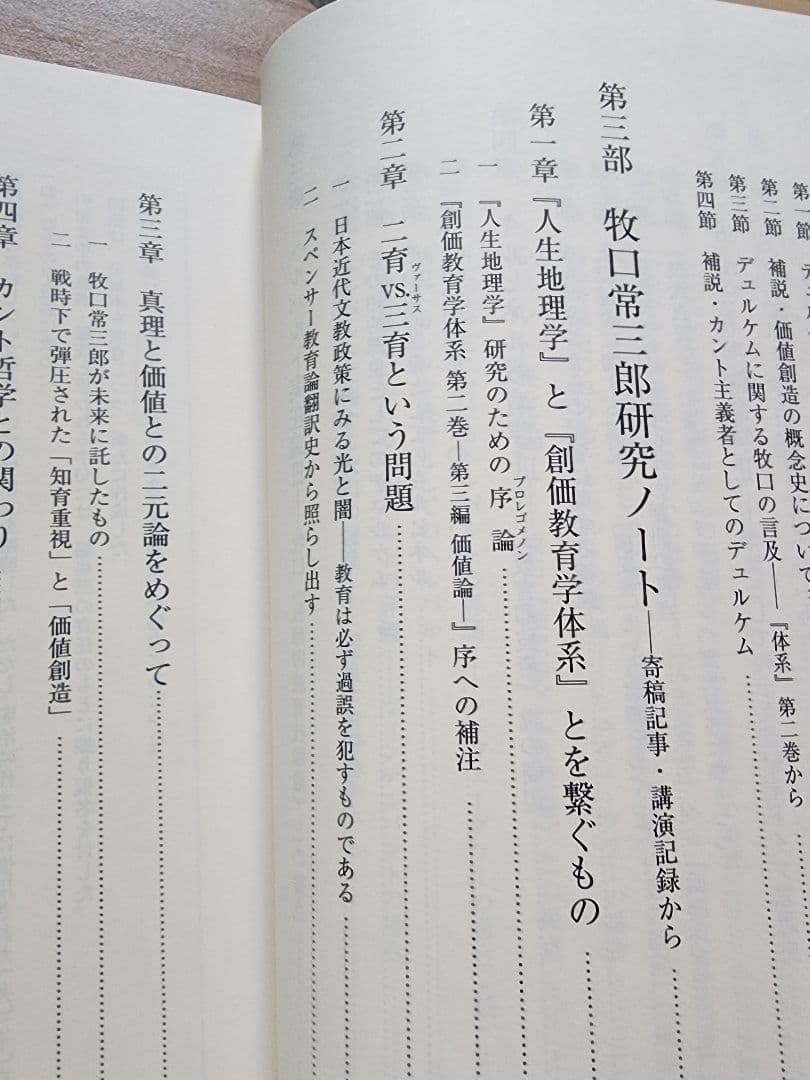 第二節 補説・価値創造の概念史について
第三節 デュルケムに関する牧口の言及――『体系』第二巻から
第四節 補説・カント主義者としてのデュルケム
第三部 牧口常三郎研究ノート――寄稿記事・講演記録から
第一章 『人生地理学』と『創価教育学体系』とを繋ぐもの
一 『人生地理学』研究のための序論
プロレゴメノン
二 『創価教育学体系 第二巻―第三編 価値論―』序への補注
第二章 二育vs.三育という問題
ヴァーサス
一 日本近代文教政策にみる光と闇――教育は必ず過誤を犯すものである
二 スペンサー教育論翻訳史から照らし出す
第三章 真理と価値との二元論をめぐって
一 牧口常三郎が未来に託したもの
二 戦時下で弾圧された「知育重視」と「価値創造」
第四章 カント哲学との関わり